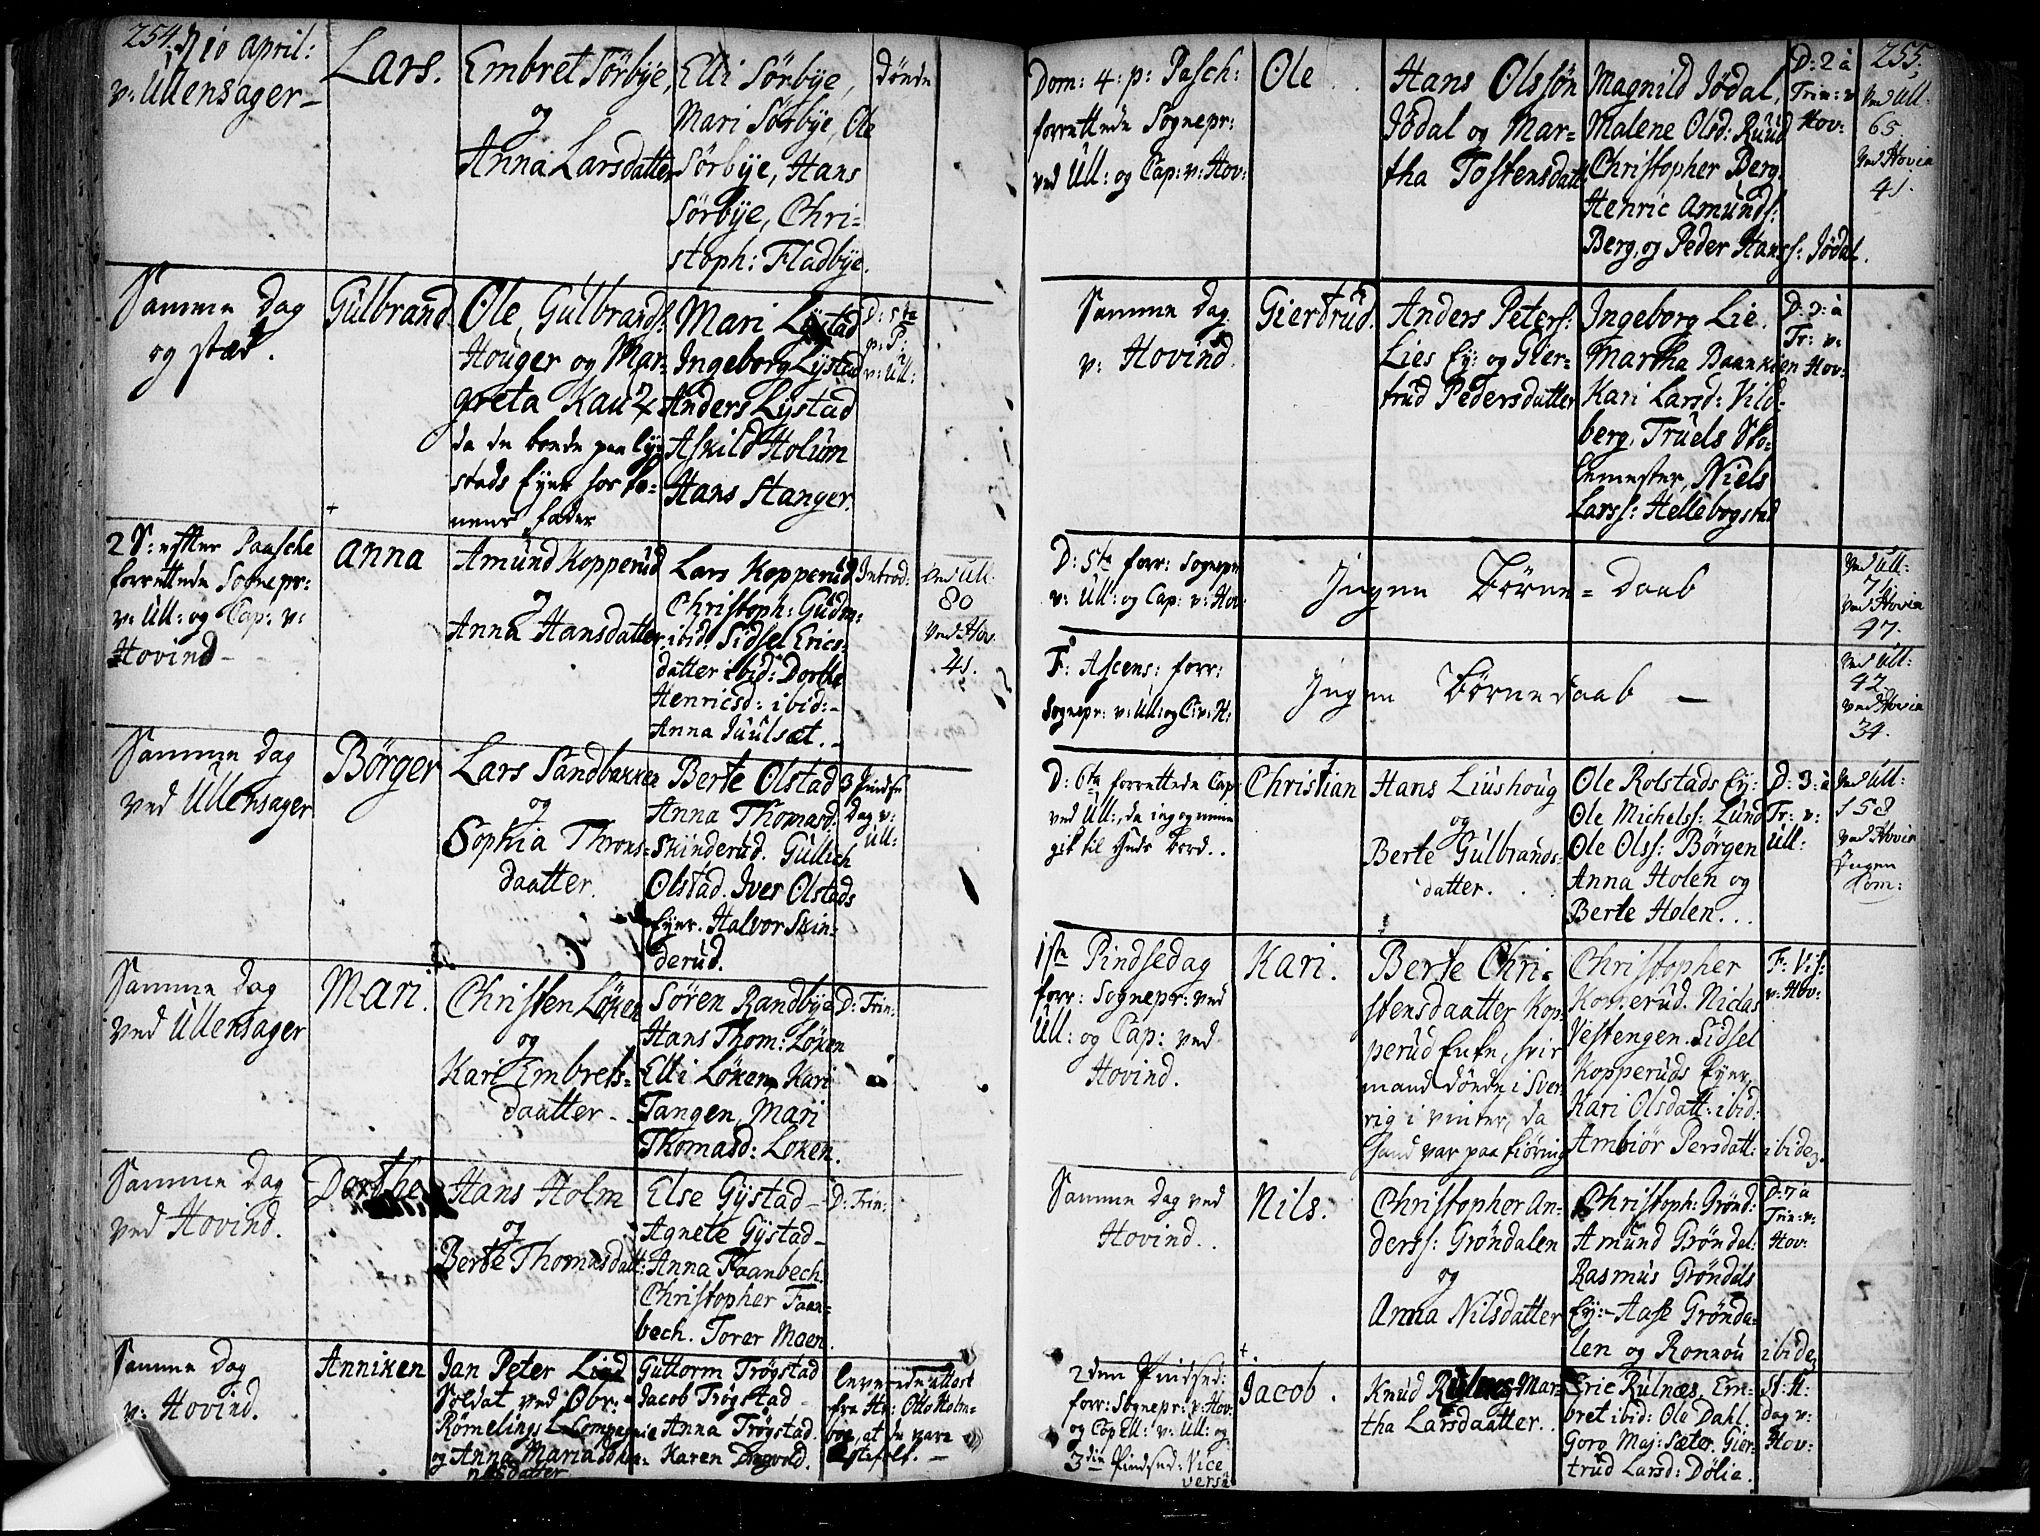 254.
d 10 April:
v: Ullensager –
Lars.
Embret Sörbye,
og
Anna Larsdatter
Elli Sörbye,
Mari Sörbye, Ole
Sörbye, Hans
Sörbye, Chri-
stoph: Fladbye.
dönde
Samme Dag
og stæd.
Gulbrand
Ole Gulbrands:
Houger og Mar-
greta Kau
da de boende paa Ly-
stads Eyer hos ko-
nens fader
Mari Lystad
Ingeborg Lystad
Anders Lystad
Askild Holum
Hans Stanger.
D: 5te
p: P:
v: Ull:
2 S: effter Paasche
forrettede Sognepr:
v: Ull: og Cap: v:
Hovind –
Anna
Amund Kopperud
og
Anna Hansdatter
Lars Kopperud
Christoph: Gudm:
ibid: Sidsel Erics-
datter ibid: Dorthe
Henricsd: ibid: –
Anna Juulsæt. –
Introd:
Ved Ull:
80
Ved Hov.
41.
Samme Dag
ved Ullensager
Börger
Lars Sandbakken
og
Sophia Throns-
daatter.
Berte Olstad
Anna Thomasd:
Skinderud. Gullich
Olstad. Iver Olstads
Eyer. Halvor Skin-
derud.
3 Pindse
Dag v:
Ull:
Samme Dag
ved Ullensager
Mari.
Christen Löken
og
Kari Embrets-
daatter –
Sören Randbye
Hans Thom: Löken
Elli Löken, Kari
Tangen, Mari
Thomasd: Löken.
D: Trin:
Samme Dag
ved Hovind.
Dorthe
Hans Holm
og
Berte Thomasdatt:
Else Gystad –
Agnete Gystad –
Anna Faanbech
Christopher Faan-
bech. Torer Maen.
D: Trin:
Samme Dag
v: Hovind.
Anniken
Jan Peter Lind
Soldat ved Obr:
Römelings Compagnie
og Anna Maria Johan-
nesdatter
Guttorm Trögstad
Jacob Trögstad –
Anna Trögstad.
Karen Dragvold.
leverede attest
fra Hr: Otto Holm-
boe, at de vare
Ægtefolk. –
255.
Dom: 4: p: Pasch:
forrettede Sognepr:
ved Ull: og Cap: v: Hov:
Ole
Hans Olssön
Jödal og Mar-
tha Tostensdatt:
Magnild Jödal,
Malene Olsd: Ruud
Christopher Berg
Henric Amunds:
Berg, og Peder Hanss: Jödal.
D: 2 à
Trin: v
Hov:
Ved Ull:
65
Ved Hovin
41.
Samme Dag
v: Hovind.
Giertrud.
Anders Peters:
Lies Ey: og Gier-
trud Pedersdatter
Ingeborg Lie.
Martha Baankien
Kari Larsd: Vild-
berg, Truels Sko-
lemester, Niels
Larss: Hellebogstad
D: 3: à
Tr: v:
Hov:
D: 5te forr: Sognepr
v: Ull: og Cap: v: Hov:
Ingen Börne-Daab
Ved Ull:
71.
Ved Hovin
47.
F: Ascens: forr:
Sognepr: v: Ull: og C: v: H:
Ingen Börnedaab –
Ved Ull:
42.
Ved Hovin
34.
D: 6te forrettede Cap:
ved Ull:, da ingen
gik til Guds Bord.
Christian
Hans Liushoug
og
Berte Gulbrands-
datter.
Ole Rolstads Ey:
Ole Michelss: Lund
Ole Olss: Börgen
Anna Holen og
Berte Holen...
D: 3: à
Tr: v:
Ull:
Ved Ull:
152
Ved Hovin
Ingen
Com:
1ste Pindsedag
forr: Sognepr: ved
Ull: og Cap: ved
Hovind.
Kari.
Berte Chri-
stensdaatter Kop-
perud Enke, hvis
mand döde i Sver-
rig i vinter, da
hand var paa kiöring
Christopher
Komerud. Niclas
Vestengen. Sidsel
Kopperuds Eyer
Kari Olsdatt: ibid:
Ambiör Persdatt: ibidem.
F: Vis:
v: Hov:
Samme Dag ved
Hovind..
Nils.
Christopher An-
derss: Gröndalen
og
Anna Nilsdatter
Christoph: Grönd:
Amund Gröndal:
Rasmus Gröndals
Ey: – Aase Grönda-
len og Ronnou ibidem
D: 7 à
Trin: v:
Hov:
2den Pindsed:
forr: Sognepr: v: Hov:
og Capell: v: Ull: og
3die Pindsed: Vice
versa
Jacob.
Knud Rulnes Mar-
tha Larsdaatter.
Eric Rulnæs, Em-
bret ibid: Ole Dahl.
Goro Maj: Sæter. Gier-
trud Larsd: Dölie.
St. H:
dag v:
Hov: